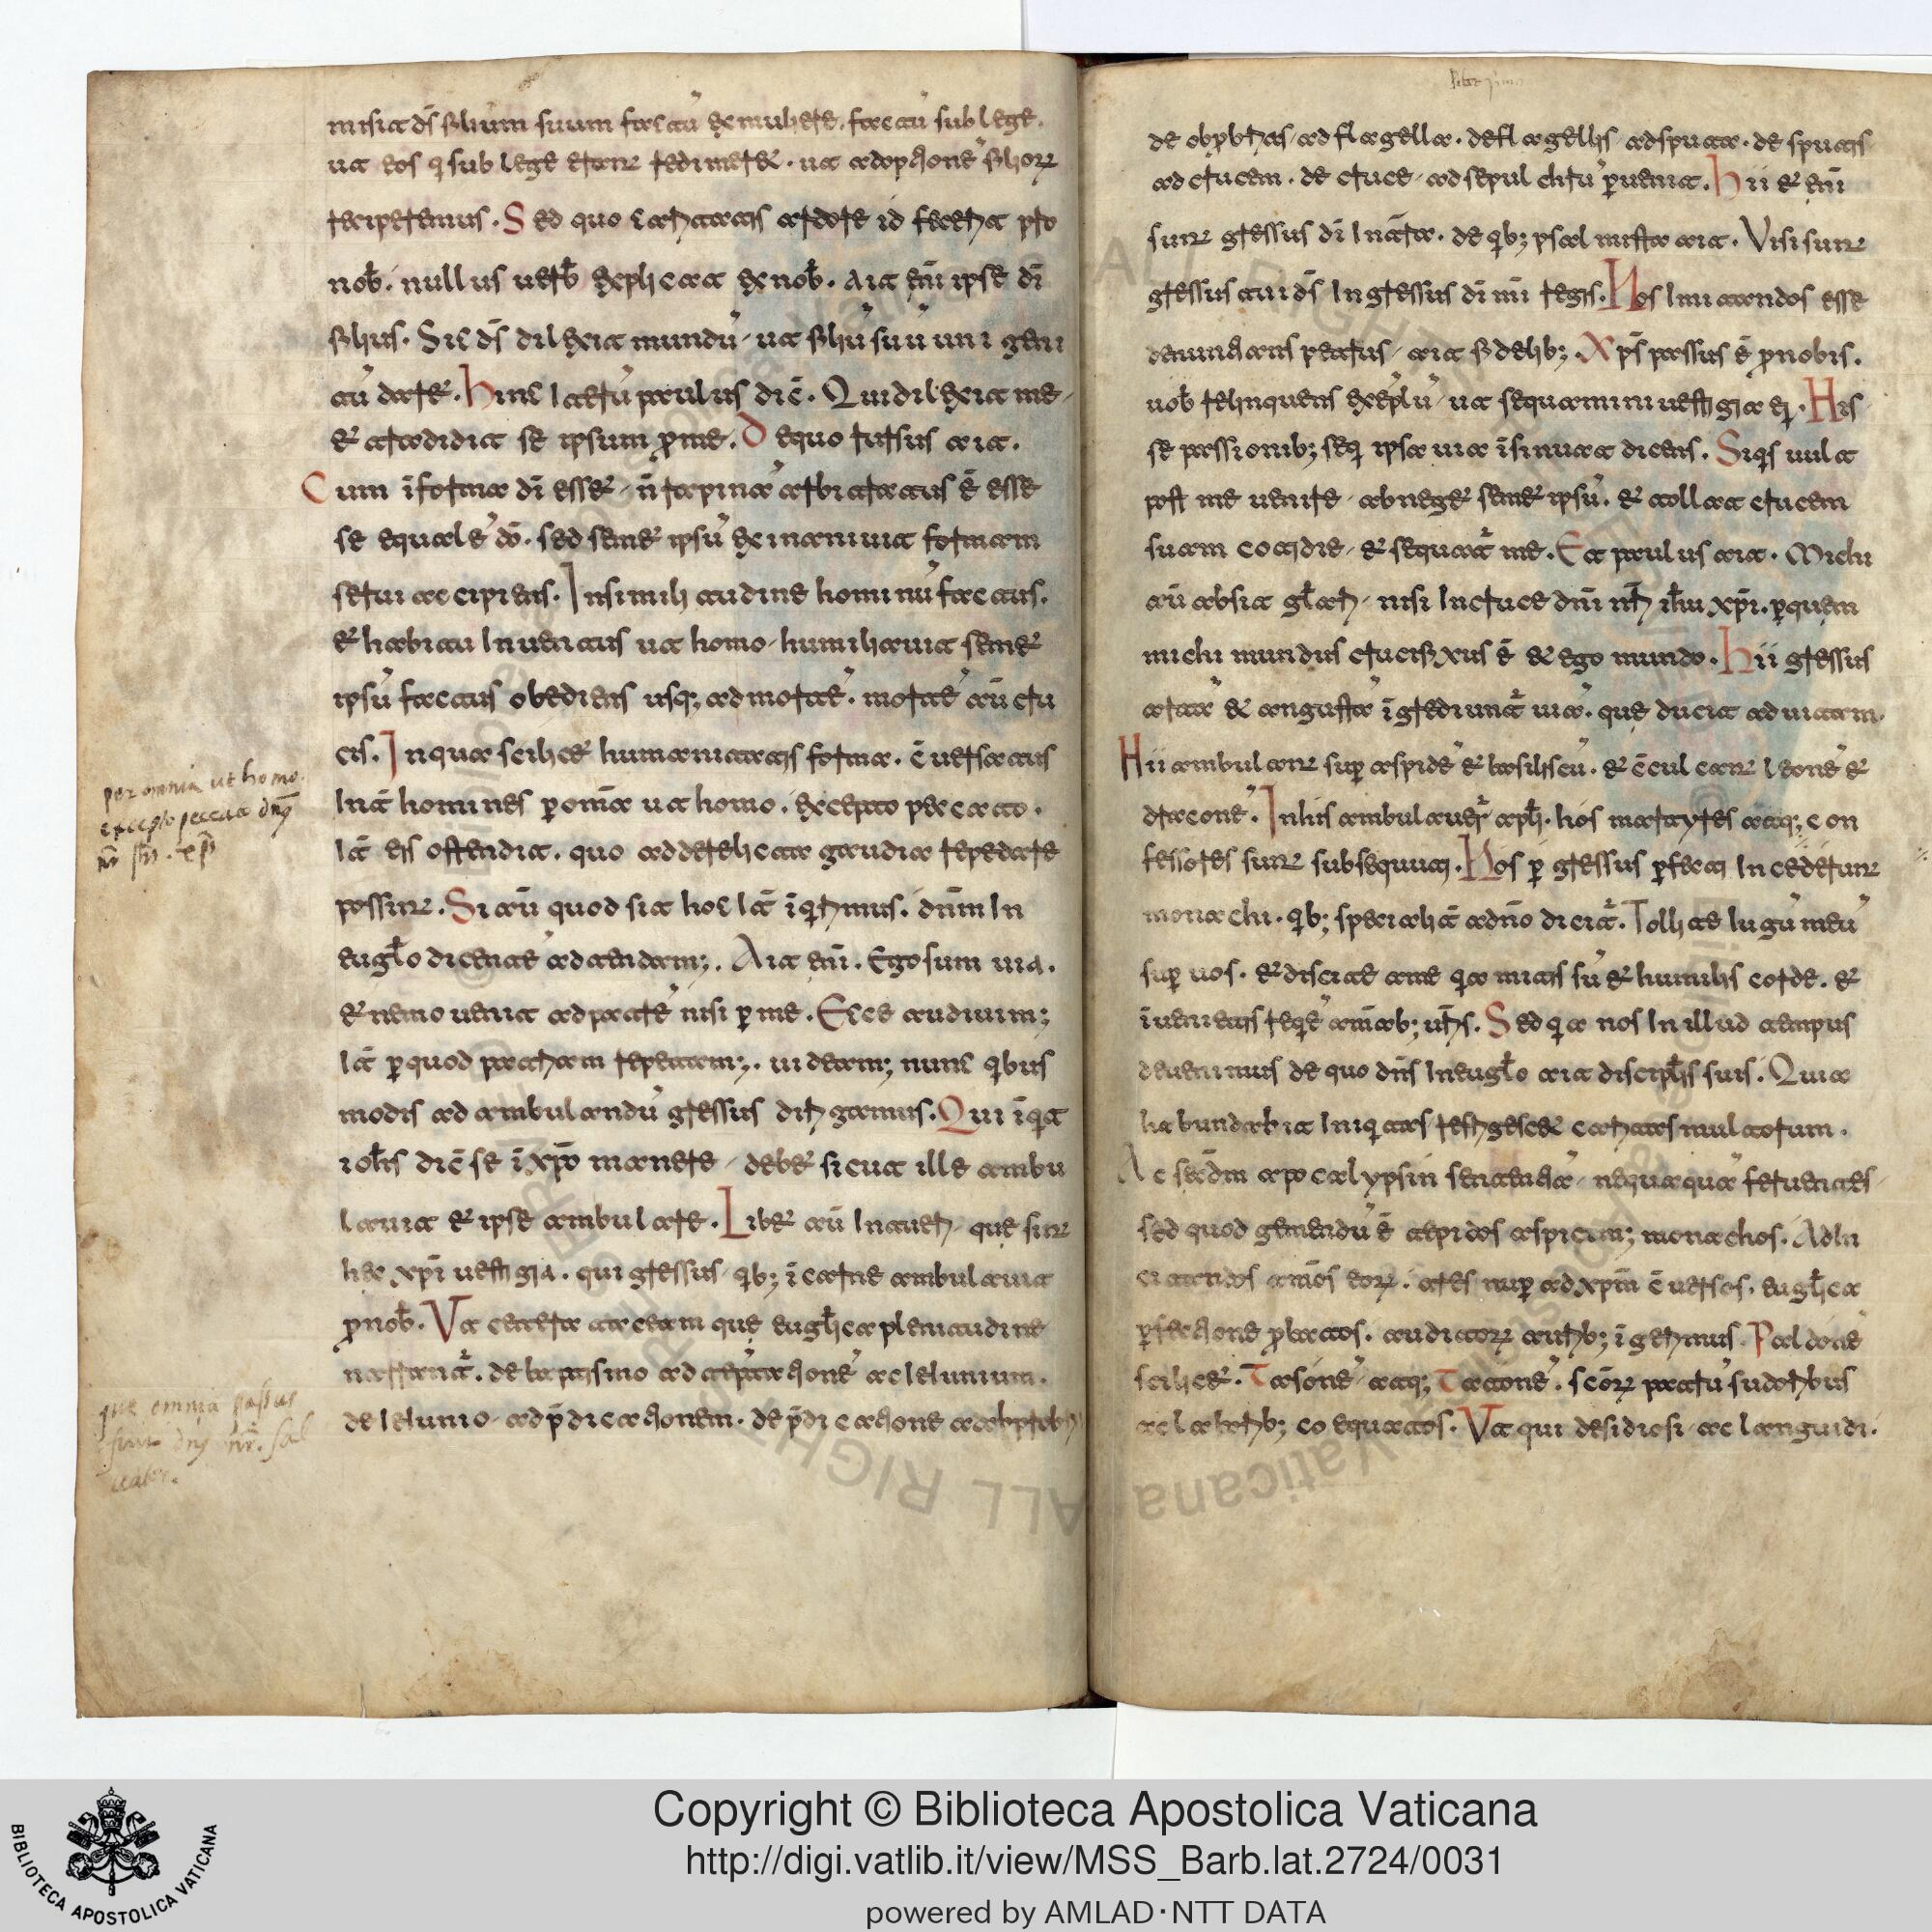 misit ds filium suum factu ex muliere. factu sub lege.
ut eos q sub lege erant redimeret. ut adoptione filiorum
reciperemus. Sed quo caritatis ardore id fecerit pro
nob. nullus uerb explicat ex nob. Ait eni ipse di
filius. Sic ds dilexit mundu ut filiu suu uni geni
tu daret. Hinc letu paulus dic. Qui dilexit me
et tradidit se ipsum p me. De quo rursus ait.
Cum i forma di esset n rapina arbitratus e esse
se equale do. sed semet ipsu exinaniuit formam
serui accipiens. In similitudine hominu factus.
et habitu Inuentus ut homo humiliauit semet
ipsu factus obediens usq; ad morte. morte au cru
cis. In qua scilicet humanitatis forma. c uersatus
Int homines p oma ut homo. excepto peccato.
It eis ostendit. quo ad derelicta gaudia repedare
possint. Si au quod sit hoc It iqrimus. dnm In
euglo dicente adtendam;. Ait eni. Ego sum uia.
et nemo uenit ad patre nisi p me. Ecce audiuim;
It p quod patriam repetam;. uideam; nunc qbus
modis ad ambulandu gressus dirigamus. Qui iqt
iohs dic se i xpo manere debet sicut ille ambu
lauit et ipse ambulare. Libet au Intueri que sint
hec xpi uestigia. qui gressus qb; i carne ambulauit
p nob. Vt cetera taceam que euglica plenitudine
narrantr. de baptismo ad teptatione ac Ieiunium.
de Ieiunio ad pdicationem. de pdicatione ad obprobri
per omnia ut homo.
excepto peccato dns
nr ihs xps
que omnia passus
fuit dns nr. sal
uator.
de obpbriis ad flagella. de flagellis ad sputa. de sputis
ad crucem. de cruce ad sepulchru puenit. Hii et eni
sunt gressus di In tra. de qb; psalmista ait. Visi sunt
gressus tui ds Ingressus di mi regis. Hos Imitandos esse
denuntians petrus ait fidelib; Xps passus e p nobis.
uob relinquens exeplu ut sequamini uestigia ei. His
se passionib; seq ipsa uia isinuat dicens. Siqs uult
post me uenire abneget semet ipsu. et tollat crucem
suam cotidie et sequatr me. Et paulus ait. Michi
au absit glari nisi In cruce dni nri ihu xpi. p quem
michi mundus crucifixus e et ego mundo. Hii gressus
arta et angusta igrediuntr uia. que ducit ad uitam.
Hii ambulant sup aspide et basiliscu. et cculcant leone et
dracone. In his ambulauer apli. hos martyres atq; con
fessores sunt subsequuti. Hos p gressus pfecti Incederunt
monachi. qb; specialit a dno dicitr. Tollite Iugu meu
sup uos. et discite a me qa mitis su et humilis corde. et
iuenietis reqe animab; uris. Sed qa nos In illud tempus
deuenimus de quo dns In euglo ait disciplis suis. Quia
habundabit Iniqitas refrigescet caritas multorum.
Ac scdm apocalypsin sententia nequaqua feruentes
sed quod gemendu e tepidos aspicim; monachos. Ad In
citandos aios eor. ates nup ad xpm c uersos. euglica
pfectione pbatos. auditor aurib; i gerimus. Paldone
scilicet. Tasone atq; Tatone. scor patru sudoribus
ac laborib; coequatos. Vt qui desidiosi ac languidi.
Copyright © Biblioteca Apostolica Vaticana
http://digi.vatlib.it/view/MSS_Barb.lat.2724/0031
powered by AMLAD·NTT DATA
BIBLIOTECA APOSTOLICA VATICANA